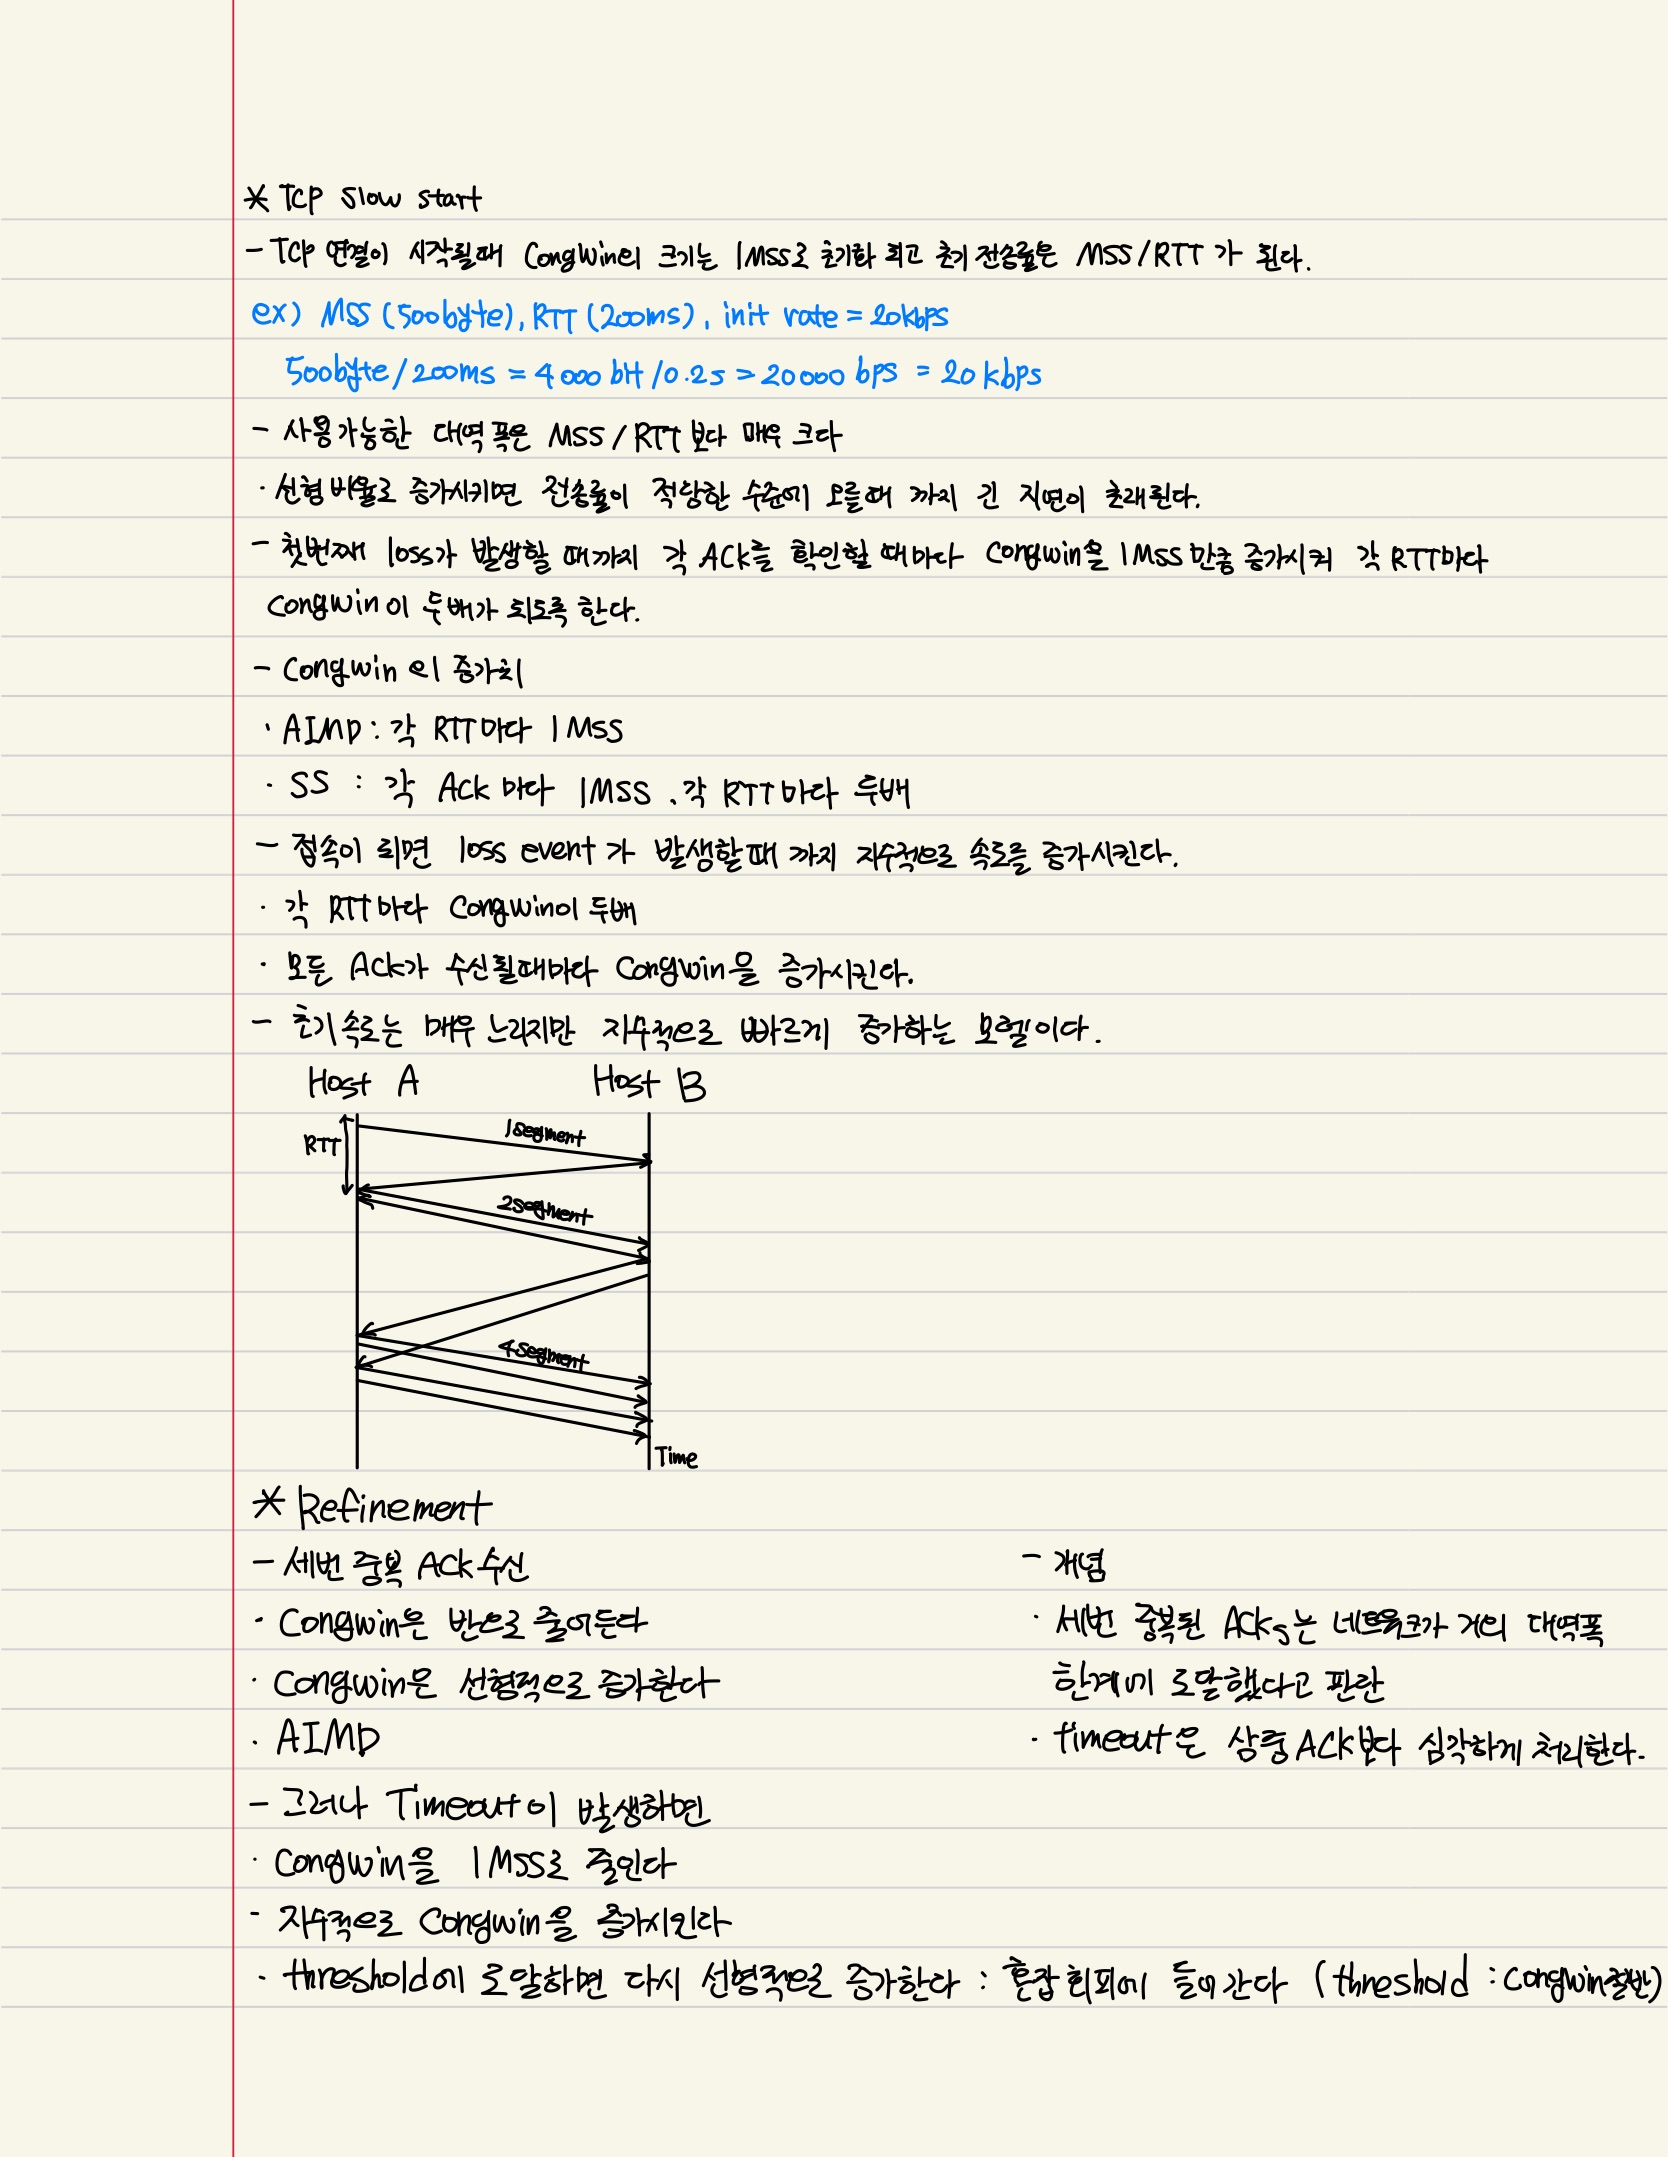 * TCP slow start
- TCP 연결이 시작될때 CongWin의 크기는 1MSS로 초기화 되고 초기 전송률은 MSS/RTT 가 된다.
ex) MSS (500byte), RTT (200ms), init rate = 20kbps
500byte/200ms = 4000 bit/0.2s => 20000 bps = 20 kbps
- 사용가능한 대역폭은 MSS/RTT 보다 매우 크다
· 선형 비율로 증가시키면 전송률이 적당한 수준에 오를때 까지 긴 지연이 초래된다.
- 첫번째 loss가 발생할 때까지 각 ACK를 확인할 때마다 CongWin을 1MSS 만큼 증가시켜 각 RTT마다
CongWin이 두배가 되도록 한다.
- Congwin의 증가치
· AIMD : 각 RTT마다 1 MSS
· SS : 각 Ack 마다 1MSS, 각 RTT마다 두배
- 접속이 되면 loss event 가 발생할때 까지 지수적으로 속도를 증가시킨다.
· 각 RTT마다 Congwin이 두배
· 모든 Ack가 수신될때마다 Congwin을 증가시킨다.
- 초기속도는 매우 느리지만 지수적으로 빠르게 증가하는 모델이다.
Host A Host B
RTT
1segment
2segment
4segment
Time
* Refinement
- 세번 중복 ACK 수신
· Congwin은 반으로 줄어든다
· Congwin은 선형적으로 증가한다
· AIMD
- 그러나 Timeout이 발생하면
· Congwin을 1MSS로 줄인다
- 지수적으로 Congwin을 증가시킨다
· threshold에 도달하면 다시 선형적으로 증가한다 : 혼잡회피에 들어간다 (threshold : Congwin절반)
- 개념
· 세번 중복된 ACKs는 네트워크가 거의 대역폭
한계에 도달했다고 판단
· timeout은 삼중ACK보다 심각하게 처리한다.